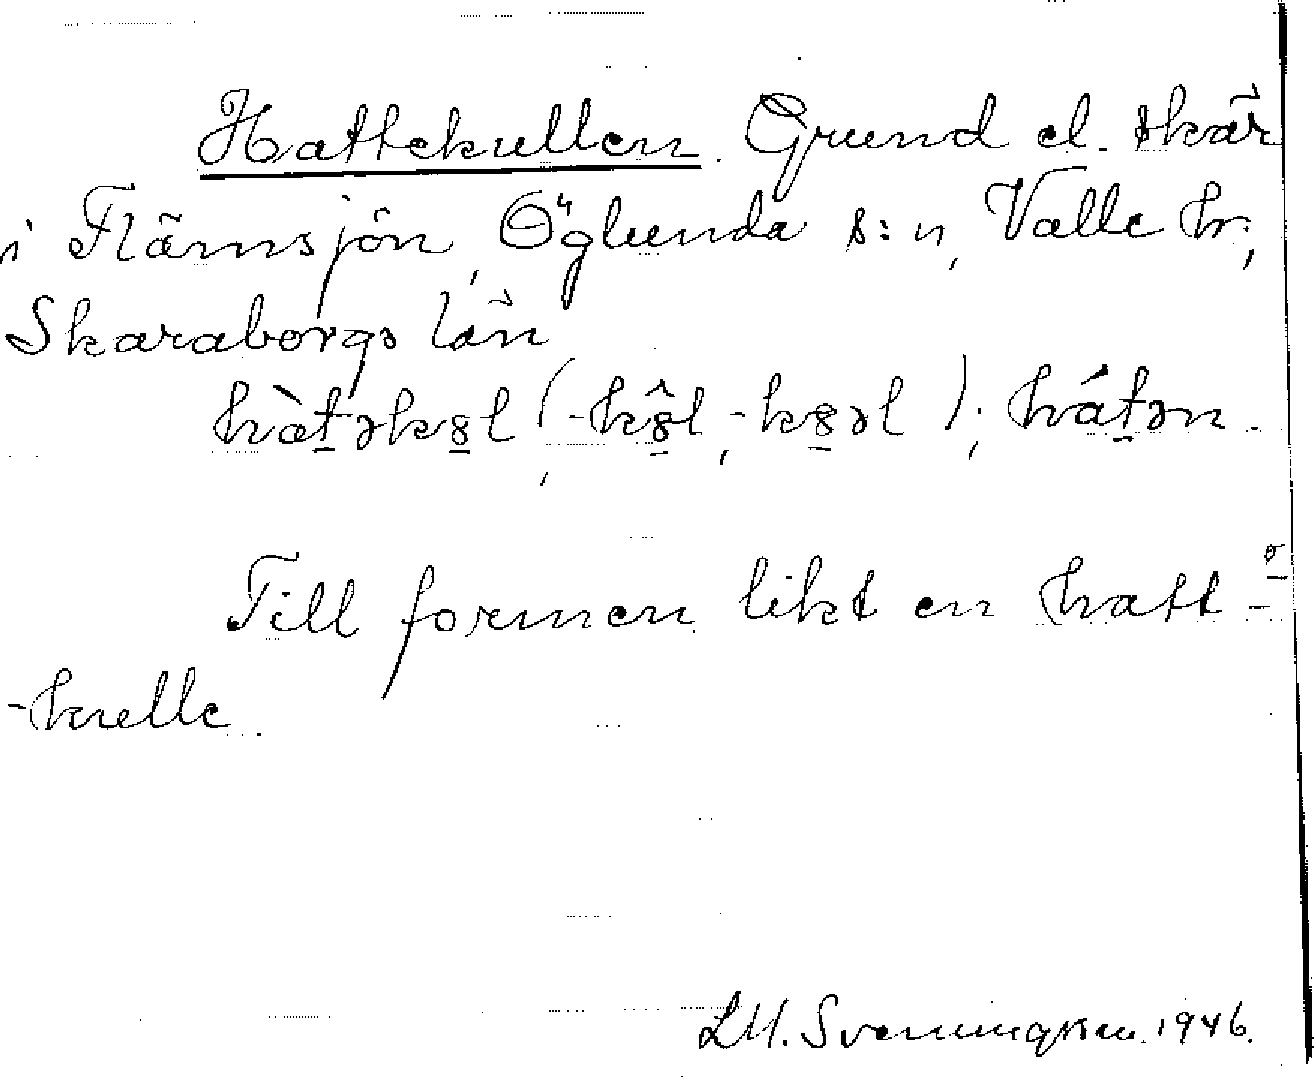 Hattekullen. Grund el. skär
i Flämsjön, Öglunda s:n, Valle hr,
Skaraborgs län
hàt̠ək8̠l (-k8̠̂l, -k8̠əl); hát̠ən.
Till formen likt en hatt-
-kulle.
1946.